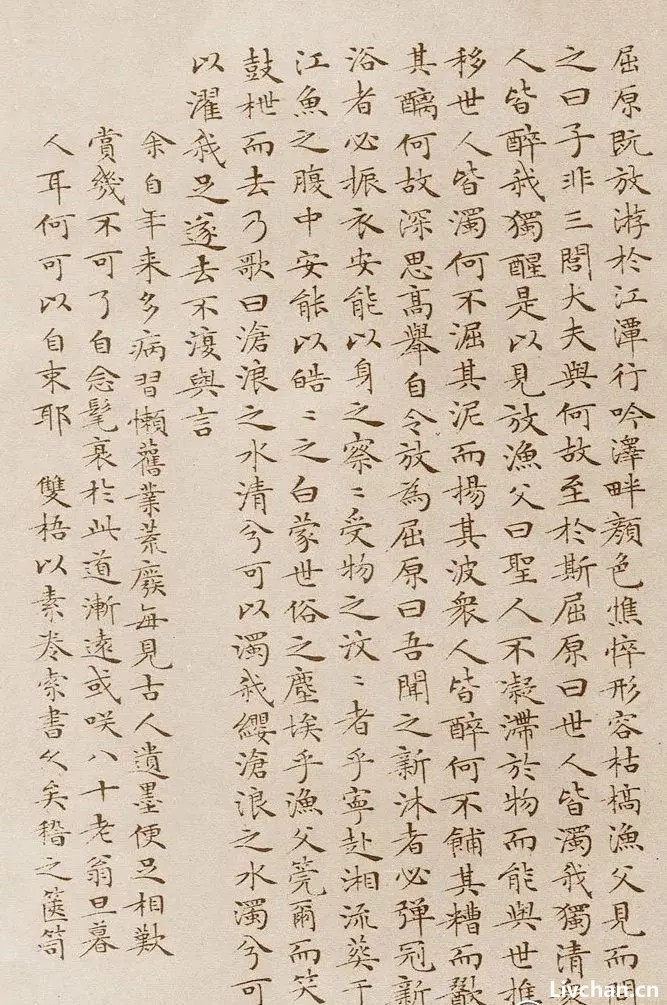 屈原既放游於江潭行吟澤畔顏色憔悴形容枯槁漁父見而問
之曰子非三閭大夫與何故至於斯屈原曰世人皆濁我獨清
人皆醉我獨醒是以見放漁父曰聖人不凝滯於物而能與世推
移世人皆濁何不淈其泥而揚其波衆人皆醉何不餔其糟而歠
其醨何故深思高舉自令放為屈原曰吾聞之新沐者必彈冠新
浴者必振衣安能以身之察〻受物之汶〻者乎寧赴湘流葬于
江魚之腹中安能以皓〻之白蒙世俗之塵埃乎漁父莞爾而笑
鼓枻而去乃歌曰滄浪之水清兮可以濁我纓滄浪之水濁兮可
以濯我足遂去不復與言
余自年来多病習懶舊業荒廢每見古人遺墨便足相歎
賞幾不可了自念髦衰於此道漸遠或咲八十老翁旦暮
人耳何可以自束耶 雙梧以素卷索書久矣稽之篋笥
Livchan.cn